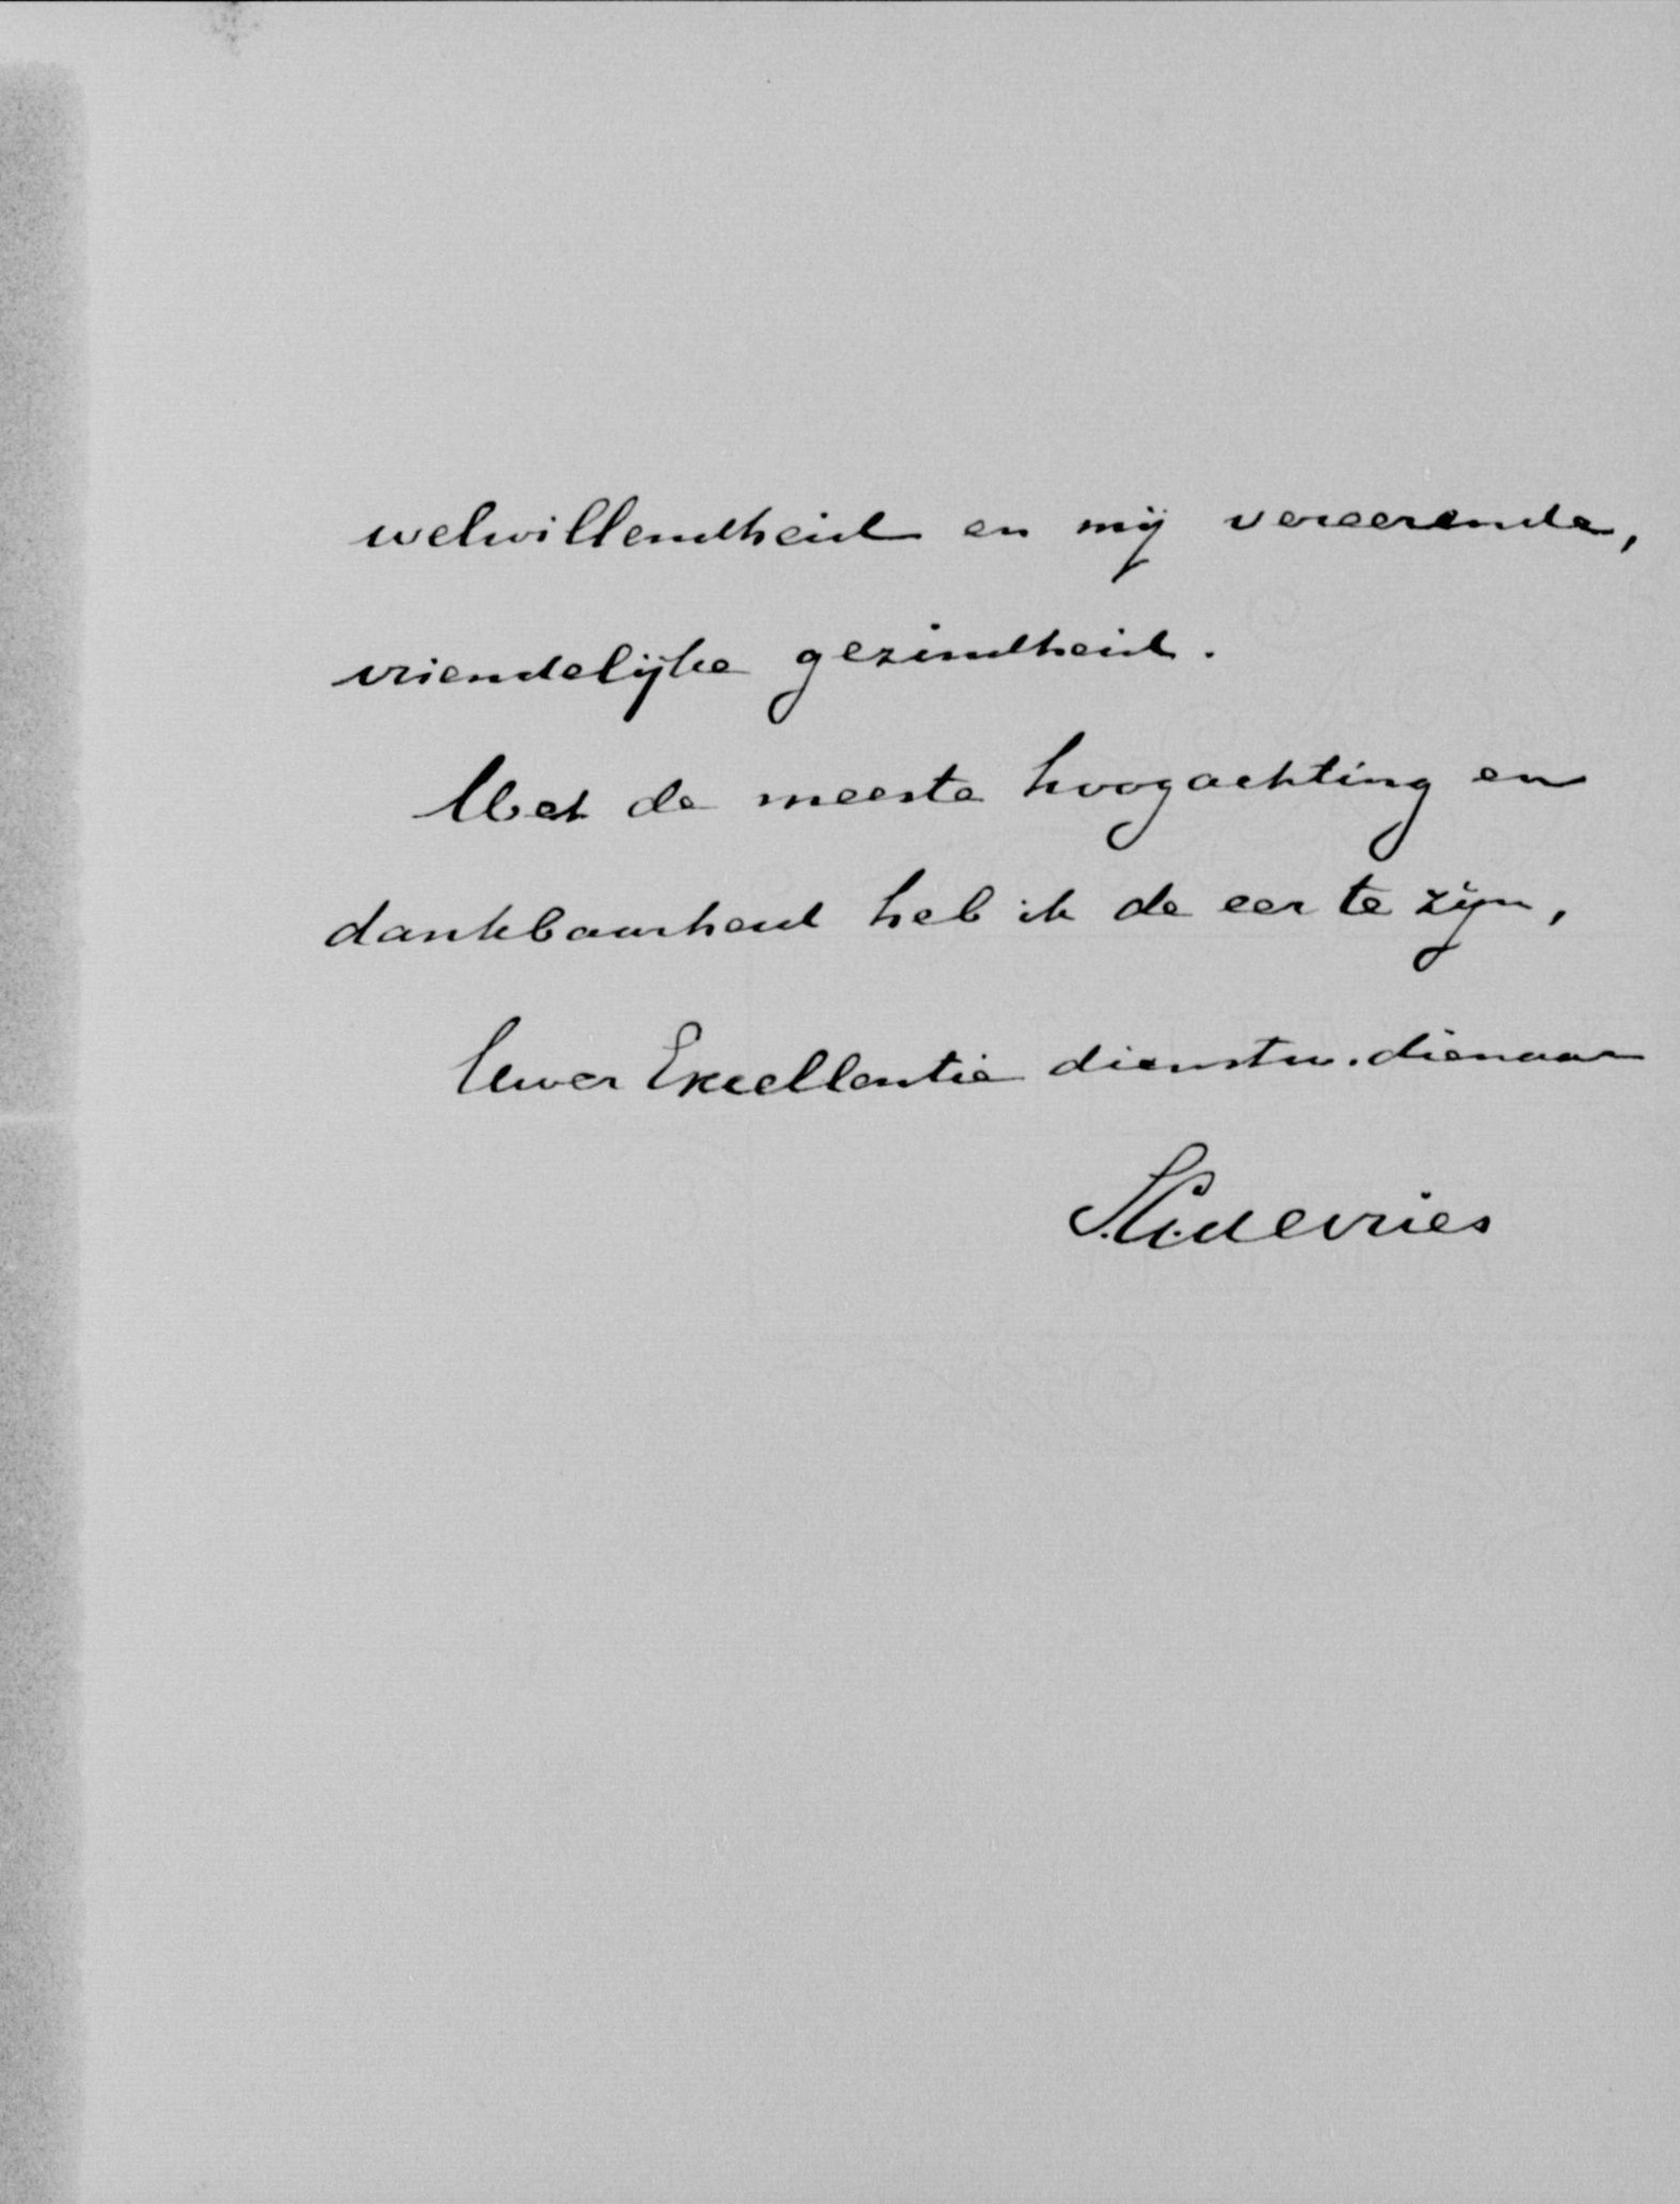 welwillendheid en mij vereerende,
vriendelijke gezindheid.
Met de meeste hoogachting en
dankbaarheid heb ik de eer te zijn,
Uwer Excellentie dienstw. dienaar
S.G. de Vries